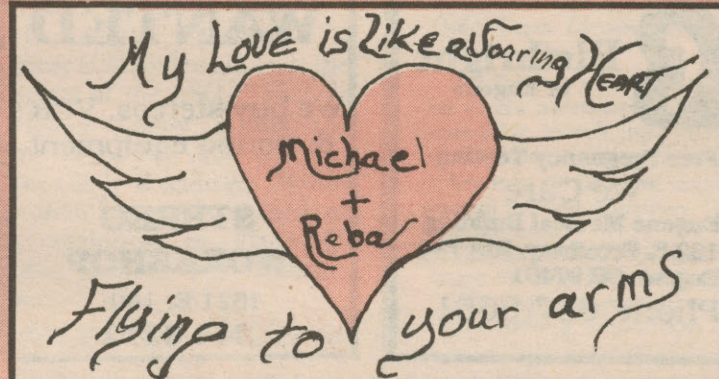 My Love is Like a Soaring Heart
Michael
+
Reba
Flying to your arms